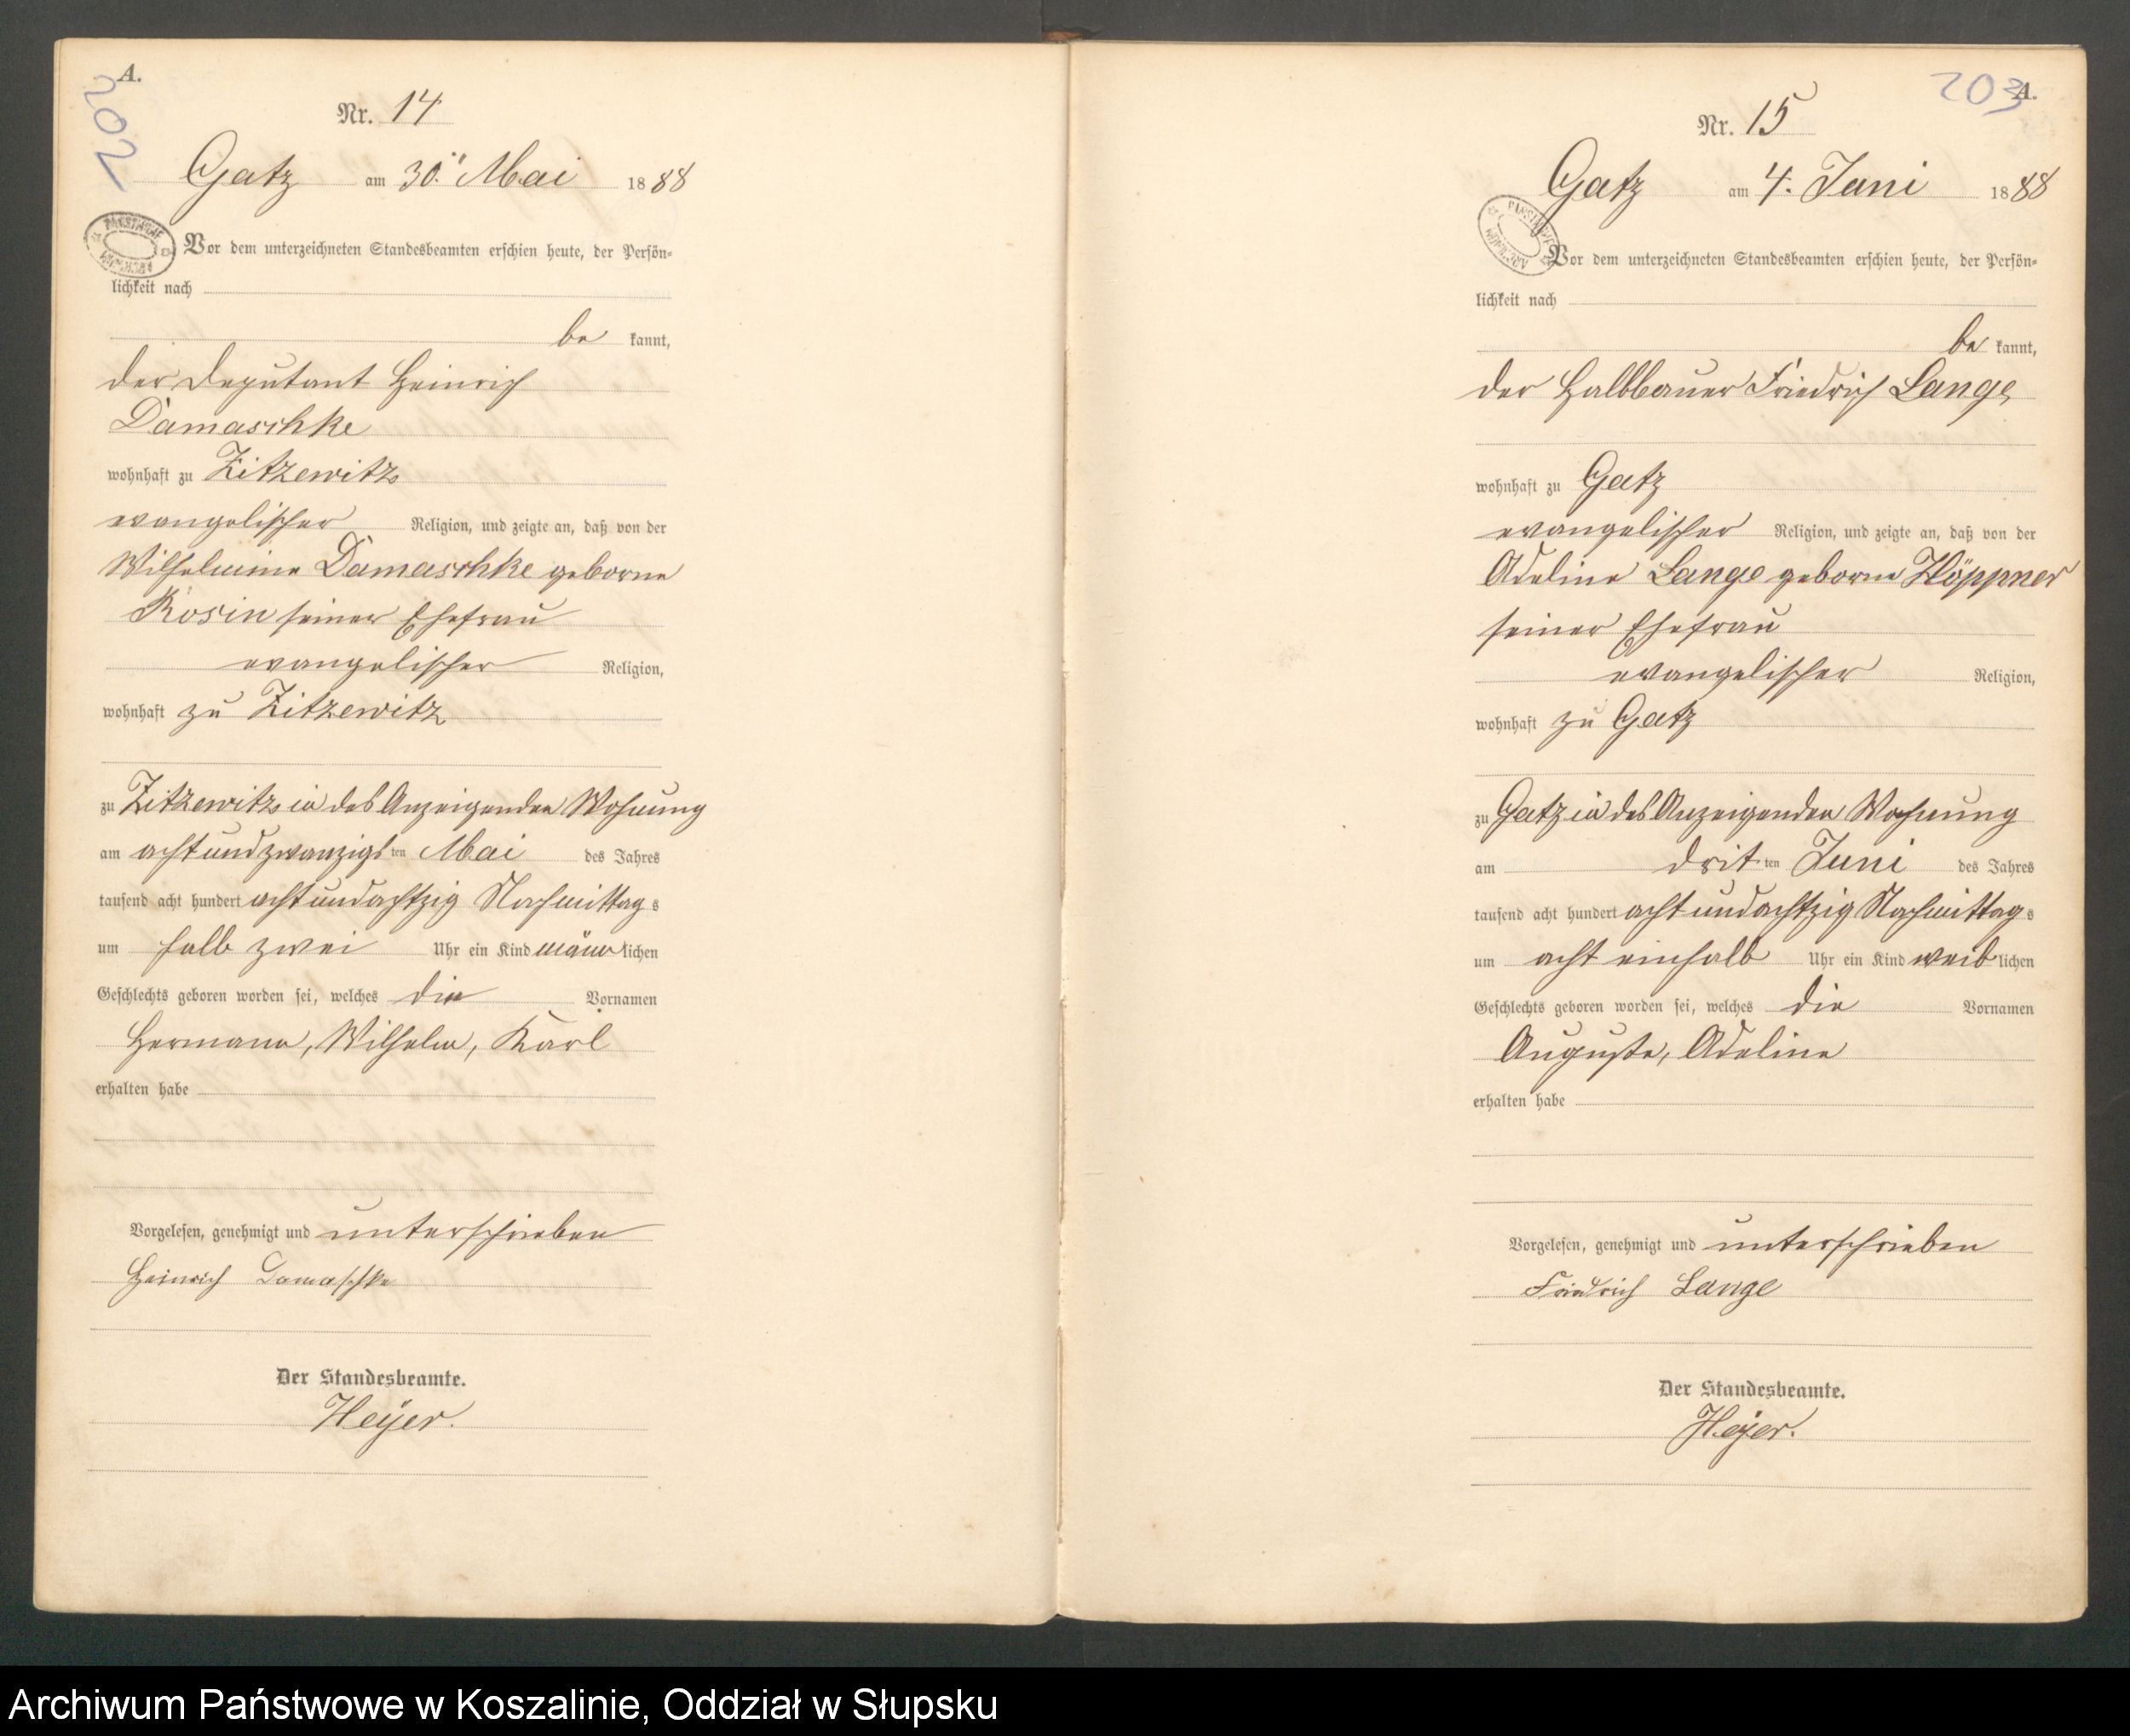 A.
202
Nr. 14
Gatz am 30. ten Mai 1888
Vor dem unterzeichneten Standesbeamten erschien heute, der Persön=
lichkeit nach
be kannt,
der Deputant Heinrich
Damaschke
wohnhaft zu Zitzewitz
evangelischer Religion, und zeigte an, daß von der
Wilhelmine Damaschke geborne
Rosin seiner Ehefrau
evangelischer Religion,
wohnhaft zu Zitzewitz
zu Zitzewitz in des Anzeigenden Wohnung
am achtundzwanzigs ten Mai des Jahres
tausend acht hundert achtundachtzig Nachmittag s
um halb zwei Uhr ein Kind männ lichen
Geschlechts geboren worden sei, welches die Vornamen
Hermann, Wilhelm, Karl
erhalten habe
Vorgelesen, genehmigt und unterschrieben
Heinrich Damaschke
Der Standesbeamte.
Heyer.
203
A.
Nr. 15
Gatz am 4. Juni 1888
Vor dem unterzeichneten Standesbeamten erschien heute, der Persön=
lichkeit nach
be kannt,
der Halbbauer Friedrich Lange
wohnhaft zu Gatz
evangelischer Religion, und zeigte an, daß von der
Adeline Lange geborne Höppner
seiner Ehefrau
evangelischer Religion,
wohnhaft zu Gatz
zu Gatz in des Anzeigenden Wohnung
am drit ten Juni des Jahres
tausend acht hundert achtundachtzig Nachmittag s
um acht einhalb Uhr ein Kind weib lichen
Geschlechts geboren worden sei, welches die Vornamen
Auguste, Adeline
erhalten habe
Vorgelesen, genehmigt und unterschrieben
Friedrich Lange
Der Standesbeamte.
Heyer.
Archiwum Państwowe w Koszalinie, Oddział w Słupsku